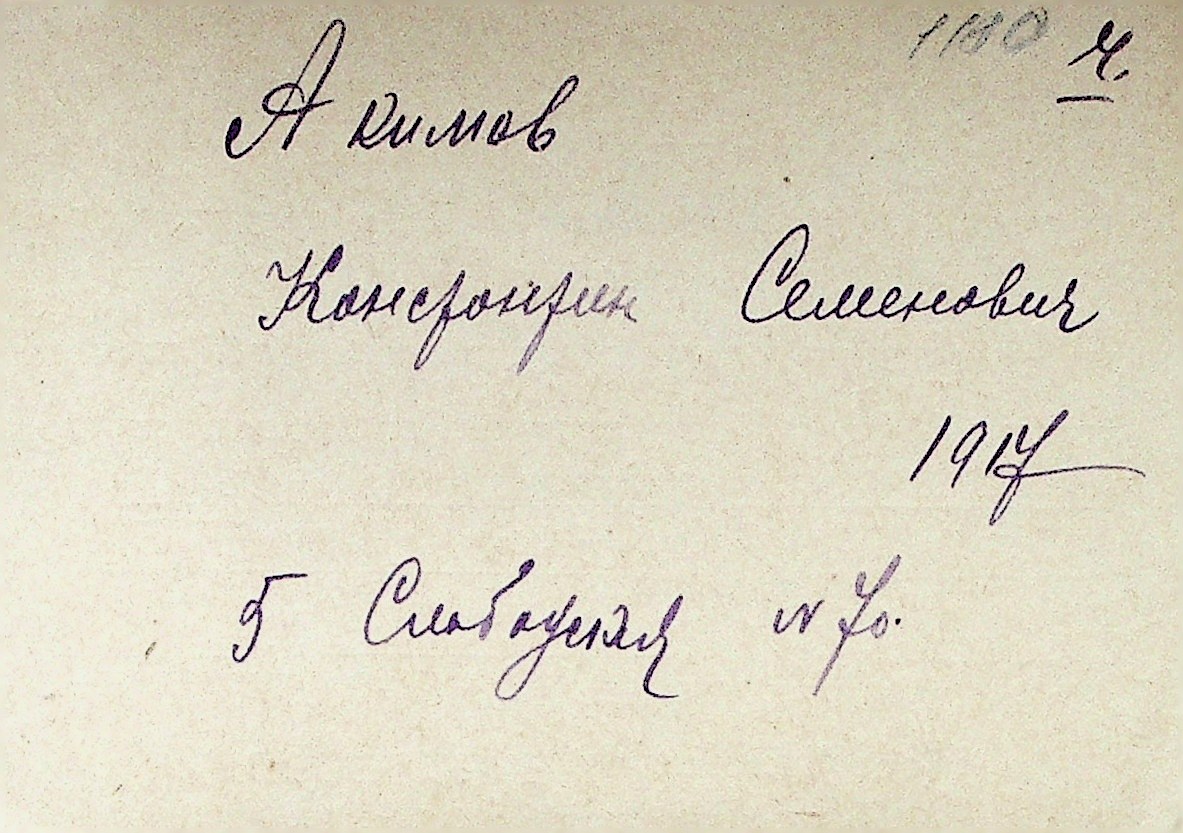 ч.
Акимов
Константин Семенович
1917
5 Слободская N 70.